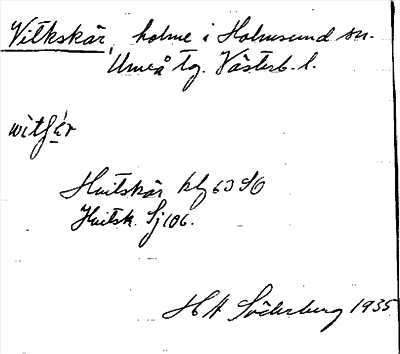 Vitkskär, holme i Holmsund sn.
Umeå tg. Västerb. l.
witʃɛ́r
Hvitskär kbl 63 SO
Hvitsk. Sj 106.
H A Söderberg 1935